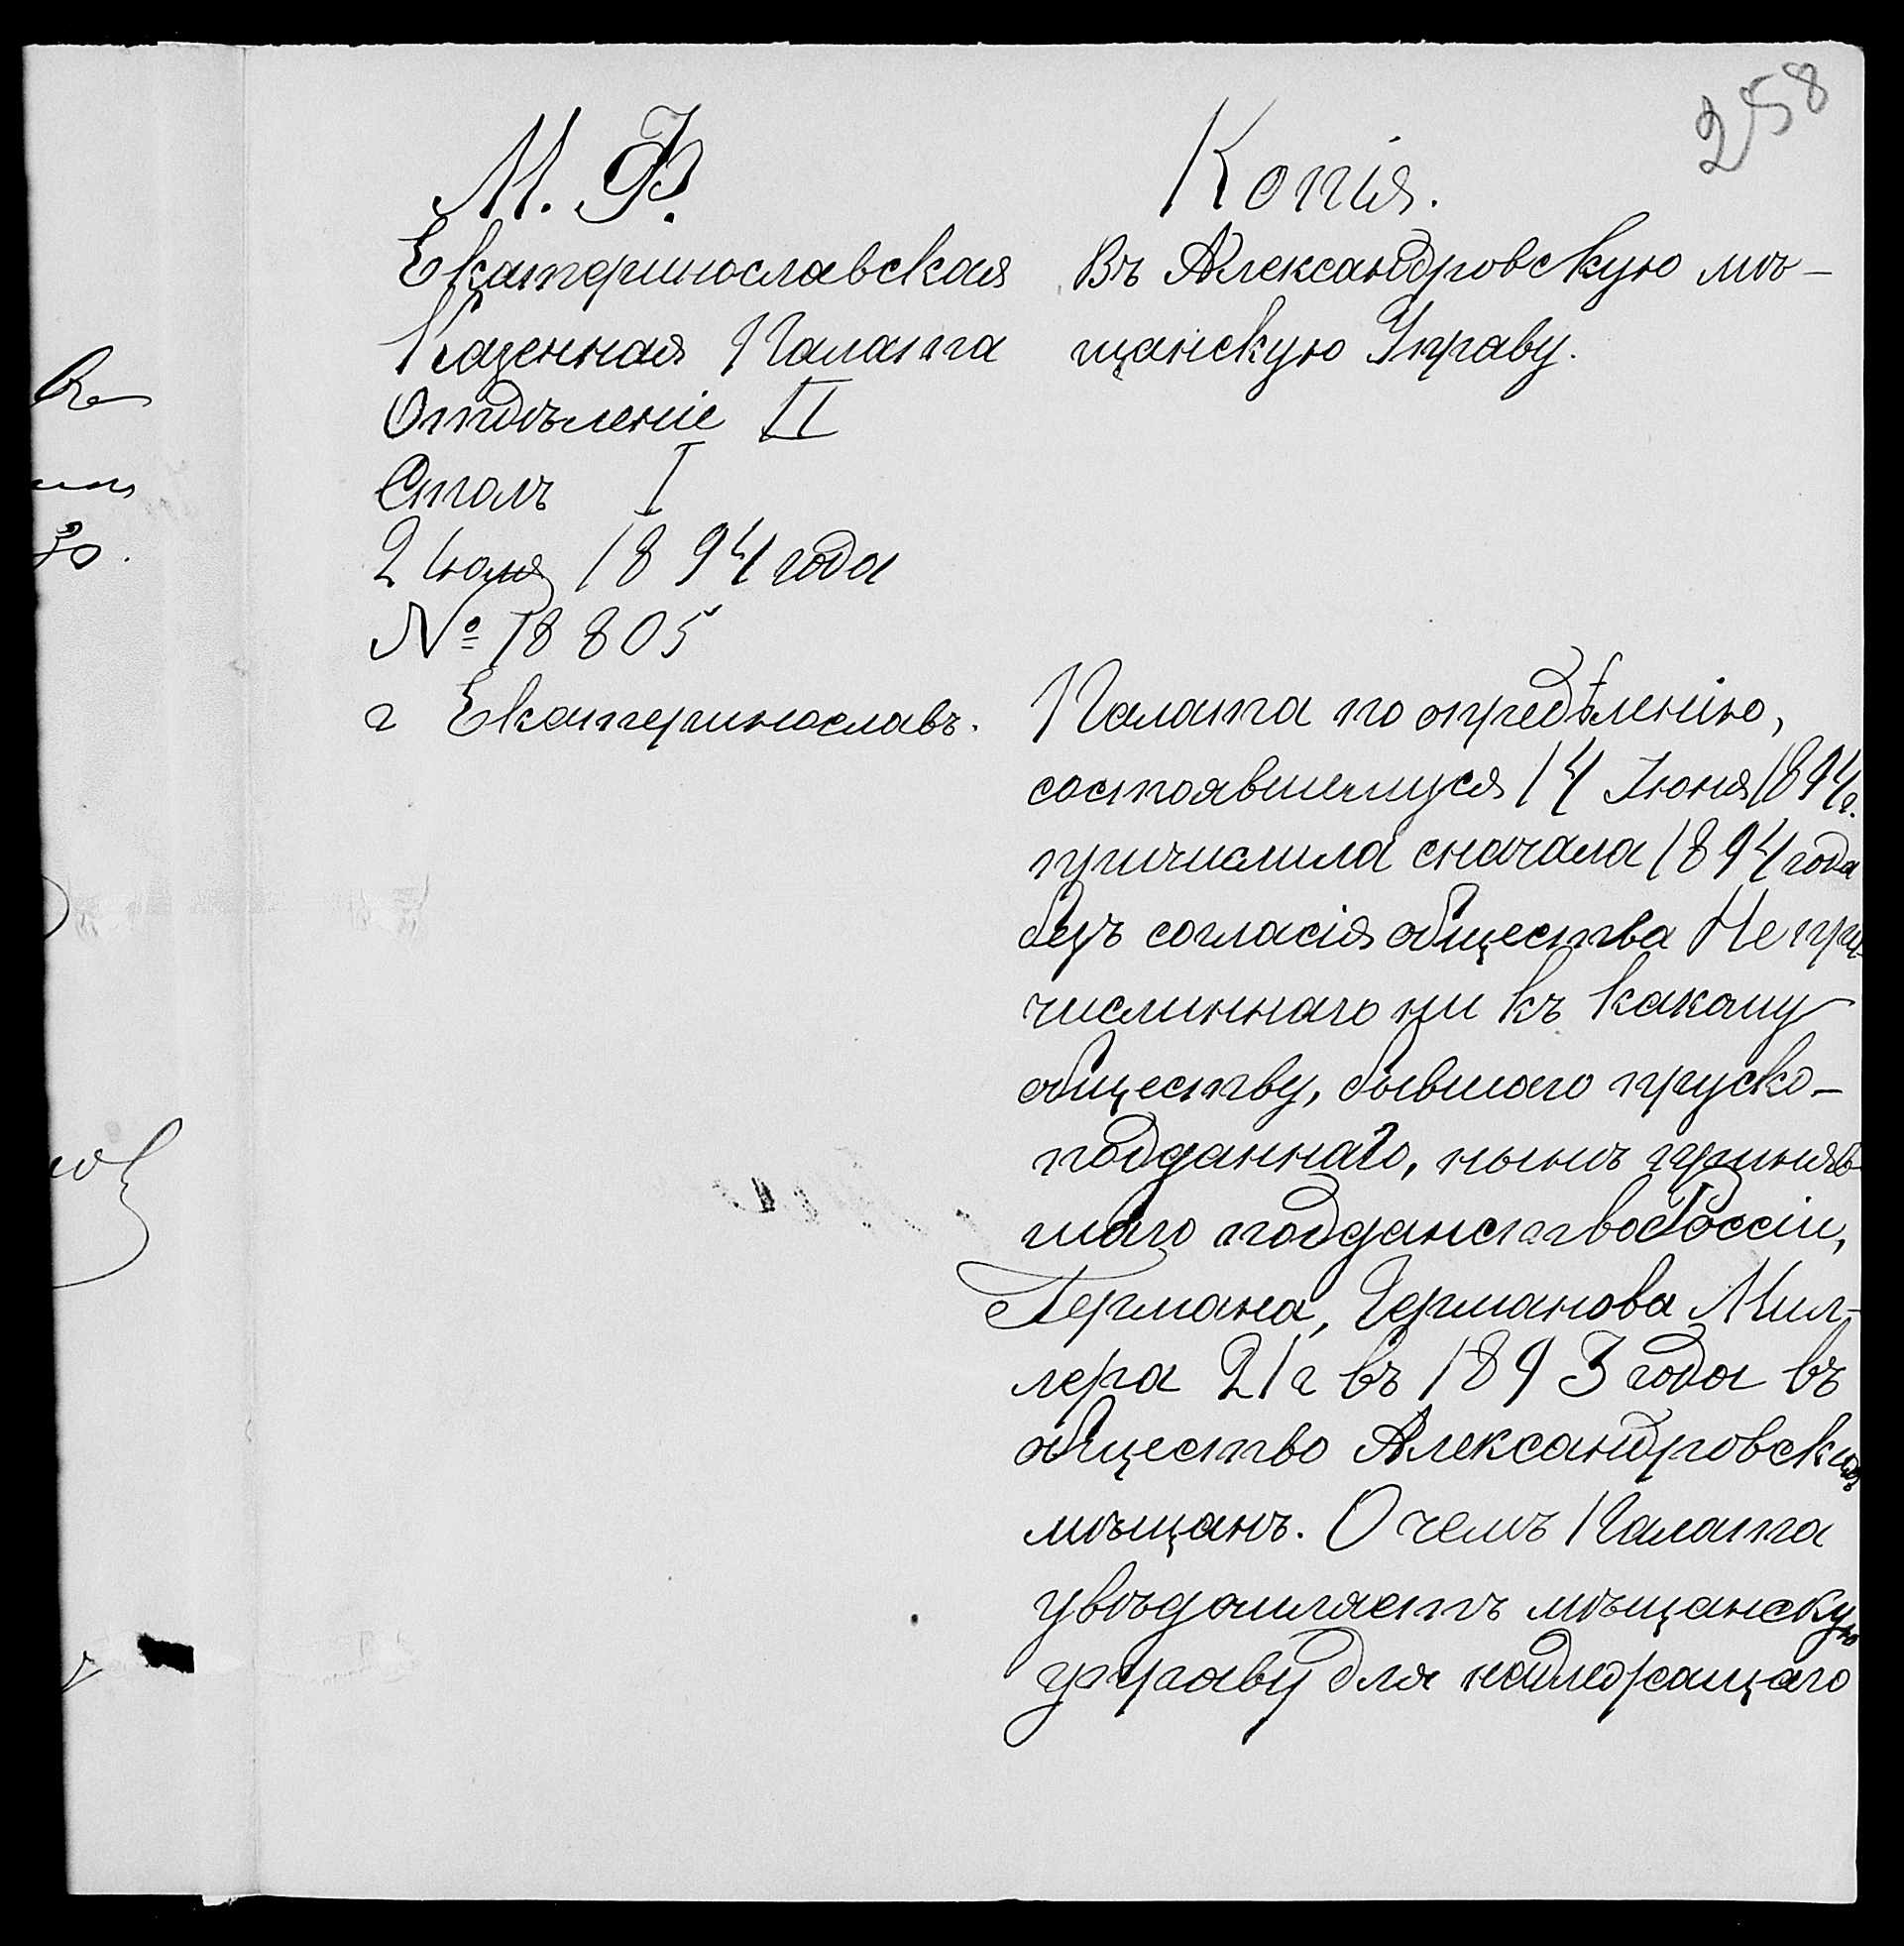 258
М. Ф.
Екатеринославская
Казенная Палата
Отдѣленіе II
Столъ I
2 Июля 1894 года
№ 18805
г Екатеринославъ.
Копія.
Въ Александровскую мѣ-
щанскую Управу.
Палата по опредѣленію,
состоявшемуся 14 Июня 1894 г.
причислила сначала 1894 года
безъ согласія общества Не при-
числиннаго ни къ какому
обществу, бывшаго пруско-
подданнаго, нынѣ приняв-
шаго подданство Россіи,
Германа, Германова Мил-
лера 21 г въ 1893 года въ
общество Александровскихъ
мѣщанъ. О чемъ Палата
увѣдомляетъ мѣщанскую
управу для надлежащаго